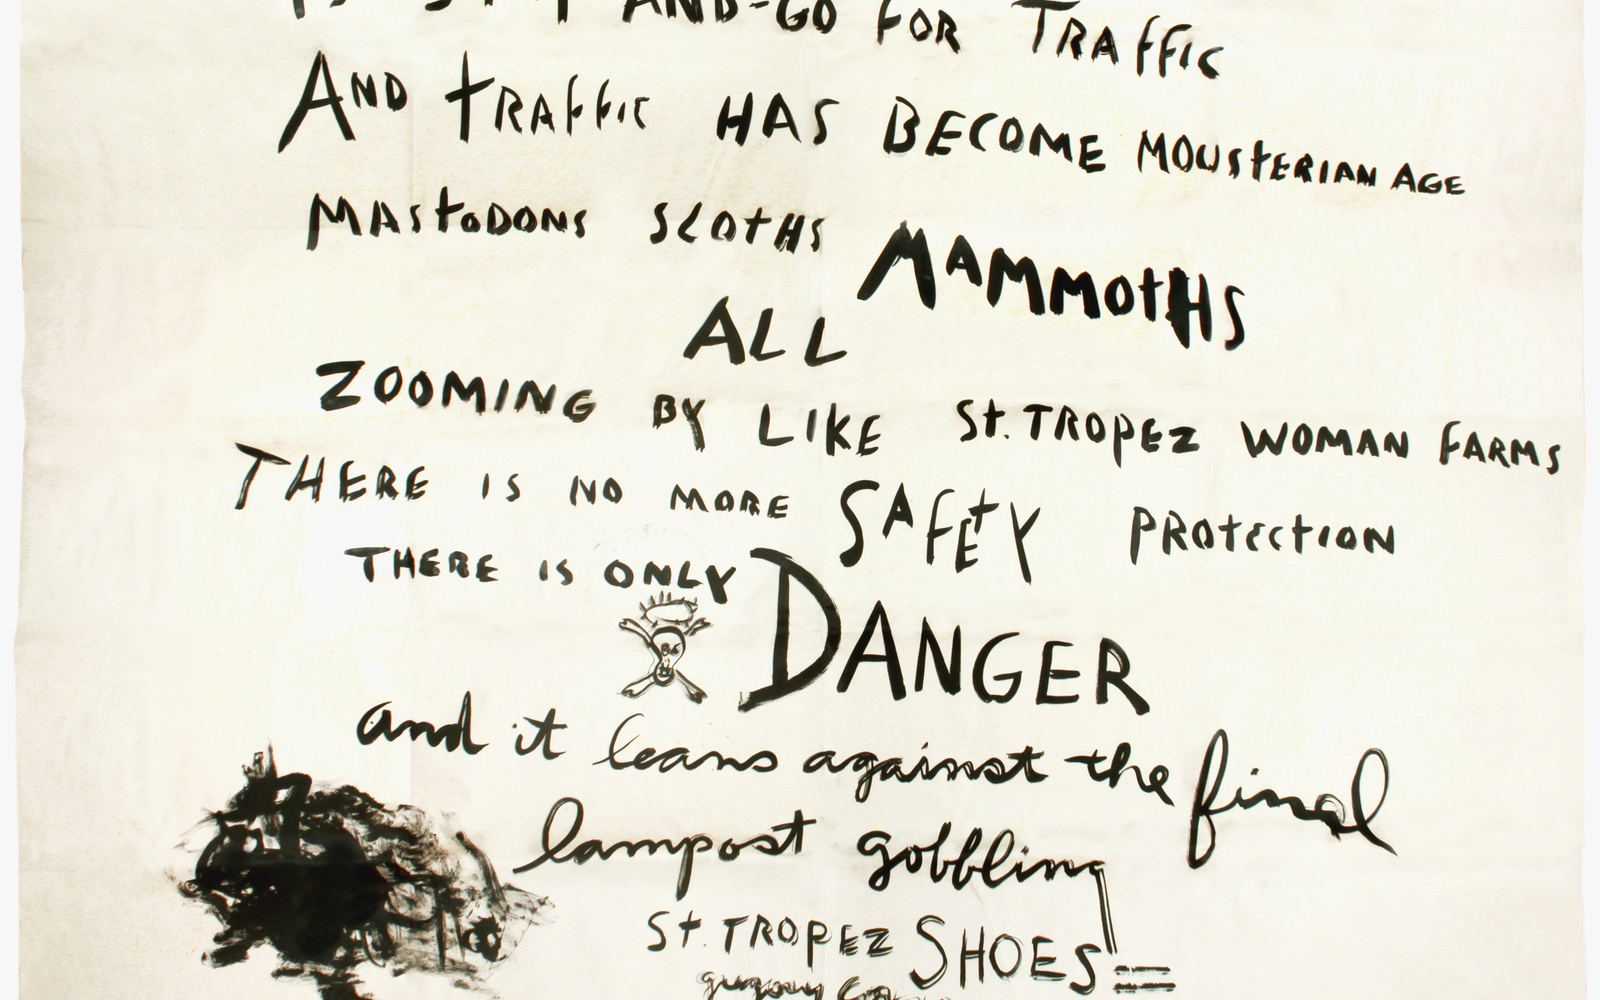 AND-GO FOR TRAFFIC
AND TRAFFIC HAS BECOME MOUSTERIAN AGE
MASTODONS SLOTHS MAMMOTHS
ALL
ZOOMING BY LIKE St. TROPEZ WOMAN FARMS
THERE IS NO MORE SAFETY PROTECTION
THERE IS ONLY DANGER
and it leans against the final
lampost gobbling
St. TROPEZ SHOES